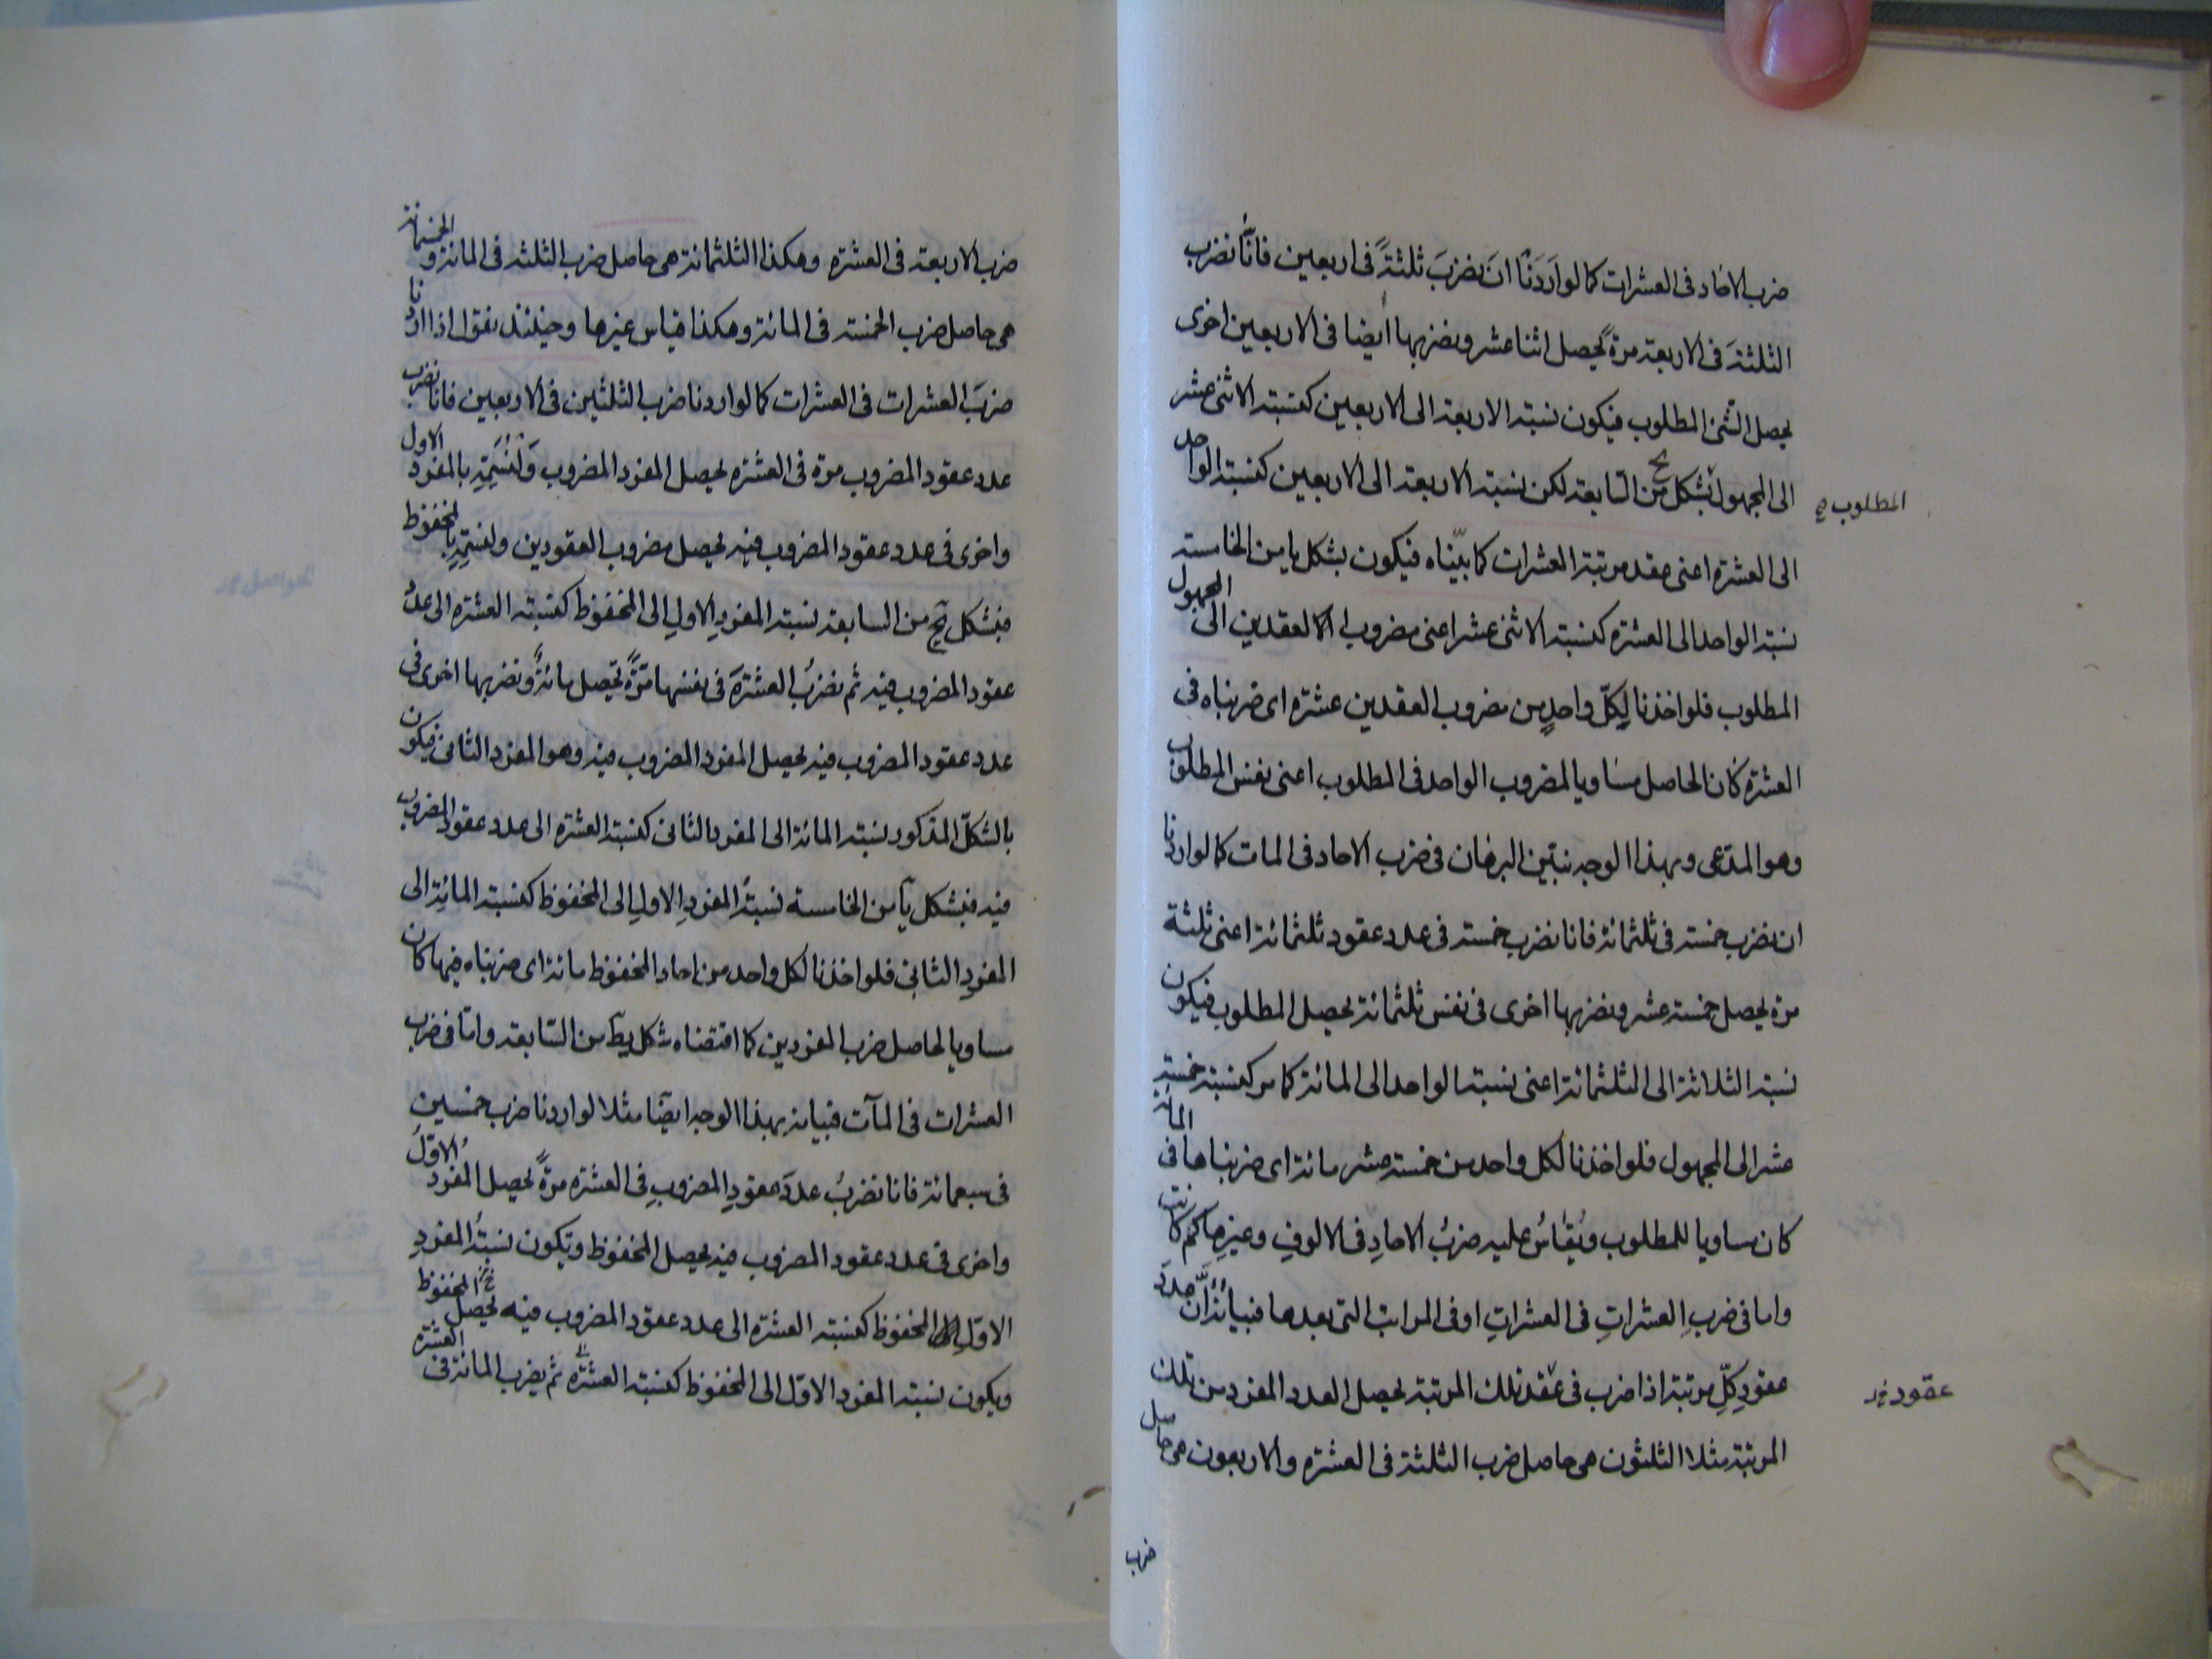 ضرب الاحاد فى العشرات كما لو اَرَدْنَا انَ نضربَ ثلثةً فى اربعين فانّا نضرب
الثلثةَ فى الاربعة مرة يحصل اثنا عشر ونضربها ايضا فى الاربعين اخرى
يحصل الشئ المطلوب فيكون نسبة الاربعة الى الاربعين كنسبة الاثنى عشر
الى المجهول بشكل يح من السّابعة لكن نسبة الاربعة الى الاربعين كنسبة الواحد
المطلوب
الى العشرة اعنى عقد مرتبة العشرات كما بيّناه فيكون بشكل يا من الخامسة
نسبة الواحد الى العشرة كنسبة الاثنى عشر اعنى مضروب العقدين الى المجهول
المطلوب فلو اخذنا لِكلّ واحدٍ من مضروب العقدين عشرة اى ضربناه فى
العشرة كان الحاصل مساويا لمضروب الواحد فى المطلوب اعنى نفس المطلوب
وهو المدّعى وبهذا الوجه نبيّن البرهان فى ضرب الاحاد فى المات كما لو اردنا
ان نضرب خمسة فى ثلثمائة فانا نضرب خمسة فى عدد عقود ثلثمائة اعنى ثلثة
مرة يحصل خمسة عشر ونضربها اخرى فى نفس ثلثمائة يحصل المطلوب فيكون
نسبة الثلاثة الى الثلثمائة اعنى نسبة الواحد الى المائة كما مر كنسبة خمسة
عشر الى المجهول فلو اخذنا لكل واحد من خمسة عشر مائة اى ضربناها فى المائة
كان مساويا للمطلوب ويُقاسُ عليه ضربُ الاحادِ فى الالوفِ وغيرِها كم كانت
واما فى ضربِ العشراتِ فى العشراتِ او فى المراتب التى بعدها فبيانه اَنّ عددَ
عقودِ كلّ مرتبة اذا ضرب فى عقد تلك المرتبة يحصل العدد المفرد من تلك
عقود
المرتبة مثلا الثلثون هى حاصل ضرب الثلثة فى العشرة والاربعون هى حاصل
ضرب
ضرب الاربعة فى العشرة وهكذا الثلثمائة هى حاصل ضرب الثلثة فى المائة و الخمسمائة
هى حاصل ضرب الخمسة فى المائة وهكذا قياس غيرها وحينئذ نقول اذا اردنا
ضربَ العشرات فى العشرات كما لو اردنا ضرب الثلثين فى الاربعين فانا نضرب
عدد عقود المضروب مرة فى العشرة يحصل المفرد المضروب وَلْنُسَمِّهِ بالمفرد الاول
واخرى فى عدد عقود المضروب فيه يحصل مضروب العقودين ولنسمّه بالمحفوظ
فبشكل يح من السابعة نسبة المفردِ الاولِ الى المحفوظ كنسبة العشرة الى عدد
عقود المضروب فيه ثم نضربُ العشرةَ فى نفسها مرّةً يحصل مائةٌ ونضربها اخرى فى
عدد عقود المضروب فيه يحصل المفرد المضروب فيه وهو المفرد الثانى فيكون
بالشكل المذكور نسبة المائة الى المفرد الثانى كنسبة العشرة الى عدد عقود المضروب
فيه فبشكل يا من الخامسة نسبةُ المفردِ الاولِ الى المحفوظ كنسبة المائةِ الى
المفردِ الثانى فلو اخذنا لكل واحد من احاد المحفوظ مائة اى ضربناه فيها كان
مساويا لحاصل ضرب المفردين كما اقتضاه شكل يط من السّابعة وامّا فى ضرب
العشرات فى المآت فبيانه بهذا الوجه ايضًا مثلا لو اردنا ضرب خمسين
فى سبعمائة فانا نضربُ عددَ عقودِ المضروبِ فى العشرة مرّةً يحصل المفرد الاوّلُ
واخرى فى عدد عقود المضروب فيه يحصل المحفوظ ويكون نسبةُ المفردِ
الاوّلِ الى المحفوظ كنسبة العشرة الى عدد عقود المضروب فيه يحصل المحفوظ
ويكون نسبة المفرد الاوّل الى المحفوظ كنسبة العشرة ثم يضرب المائة فى العشرة